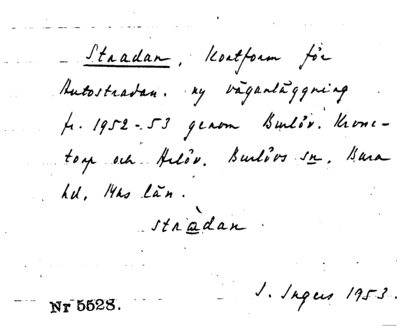 Stradan, Kortform för
Autostradan. ny väganläggning
fr. 1952-53 genom Burlöv. Krons-
torp och Arlöv. Burlövs sn, Bara
hd, Mhs län.
stràdan
I. Ingers 1953.
Nr 5528.